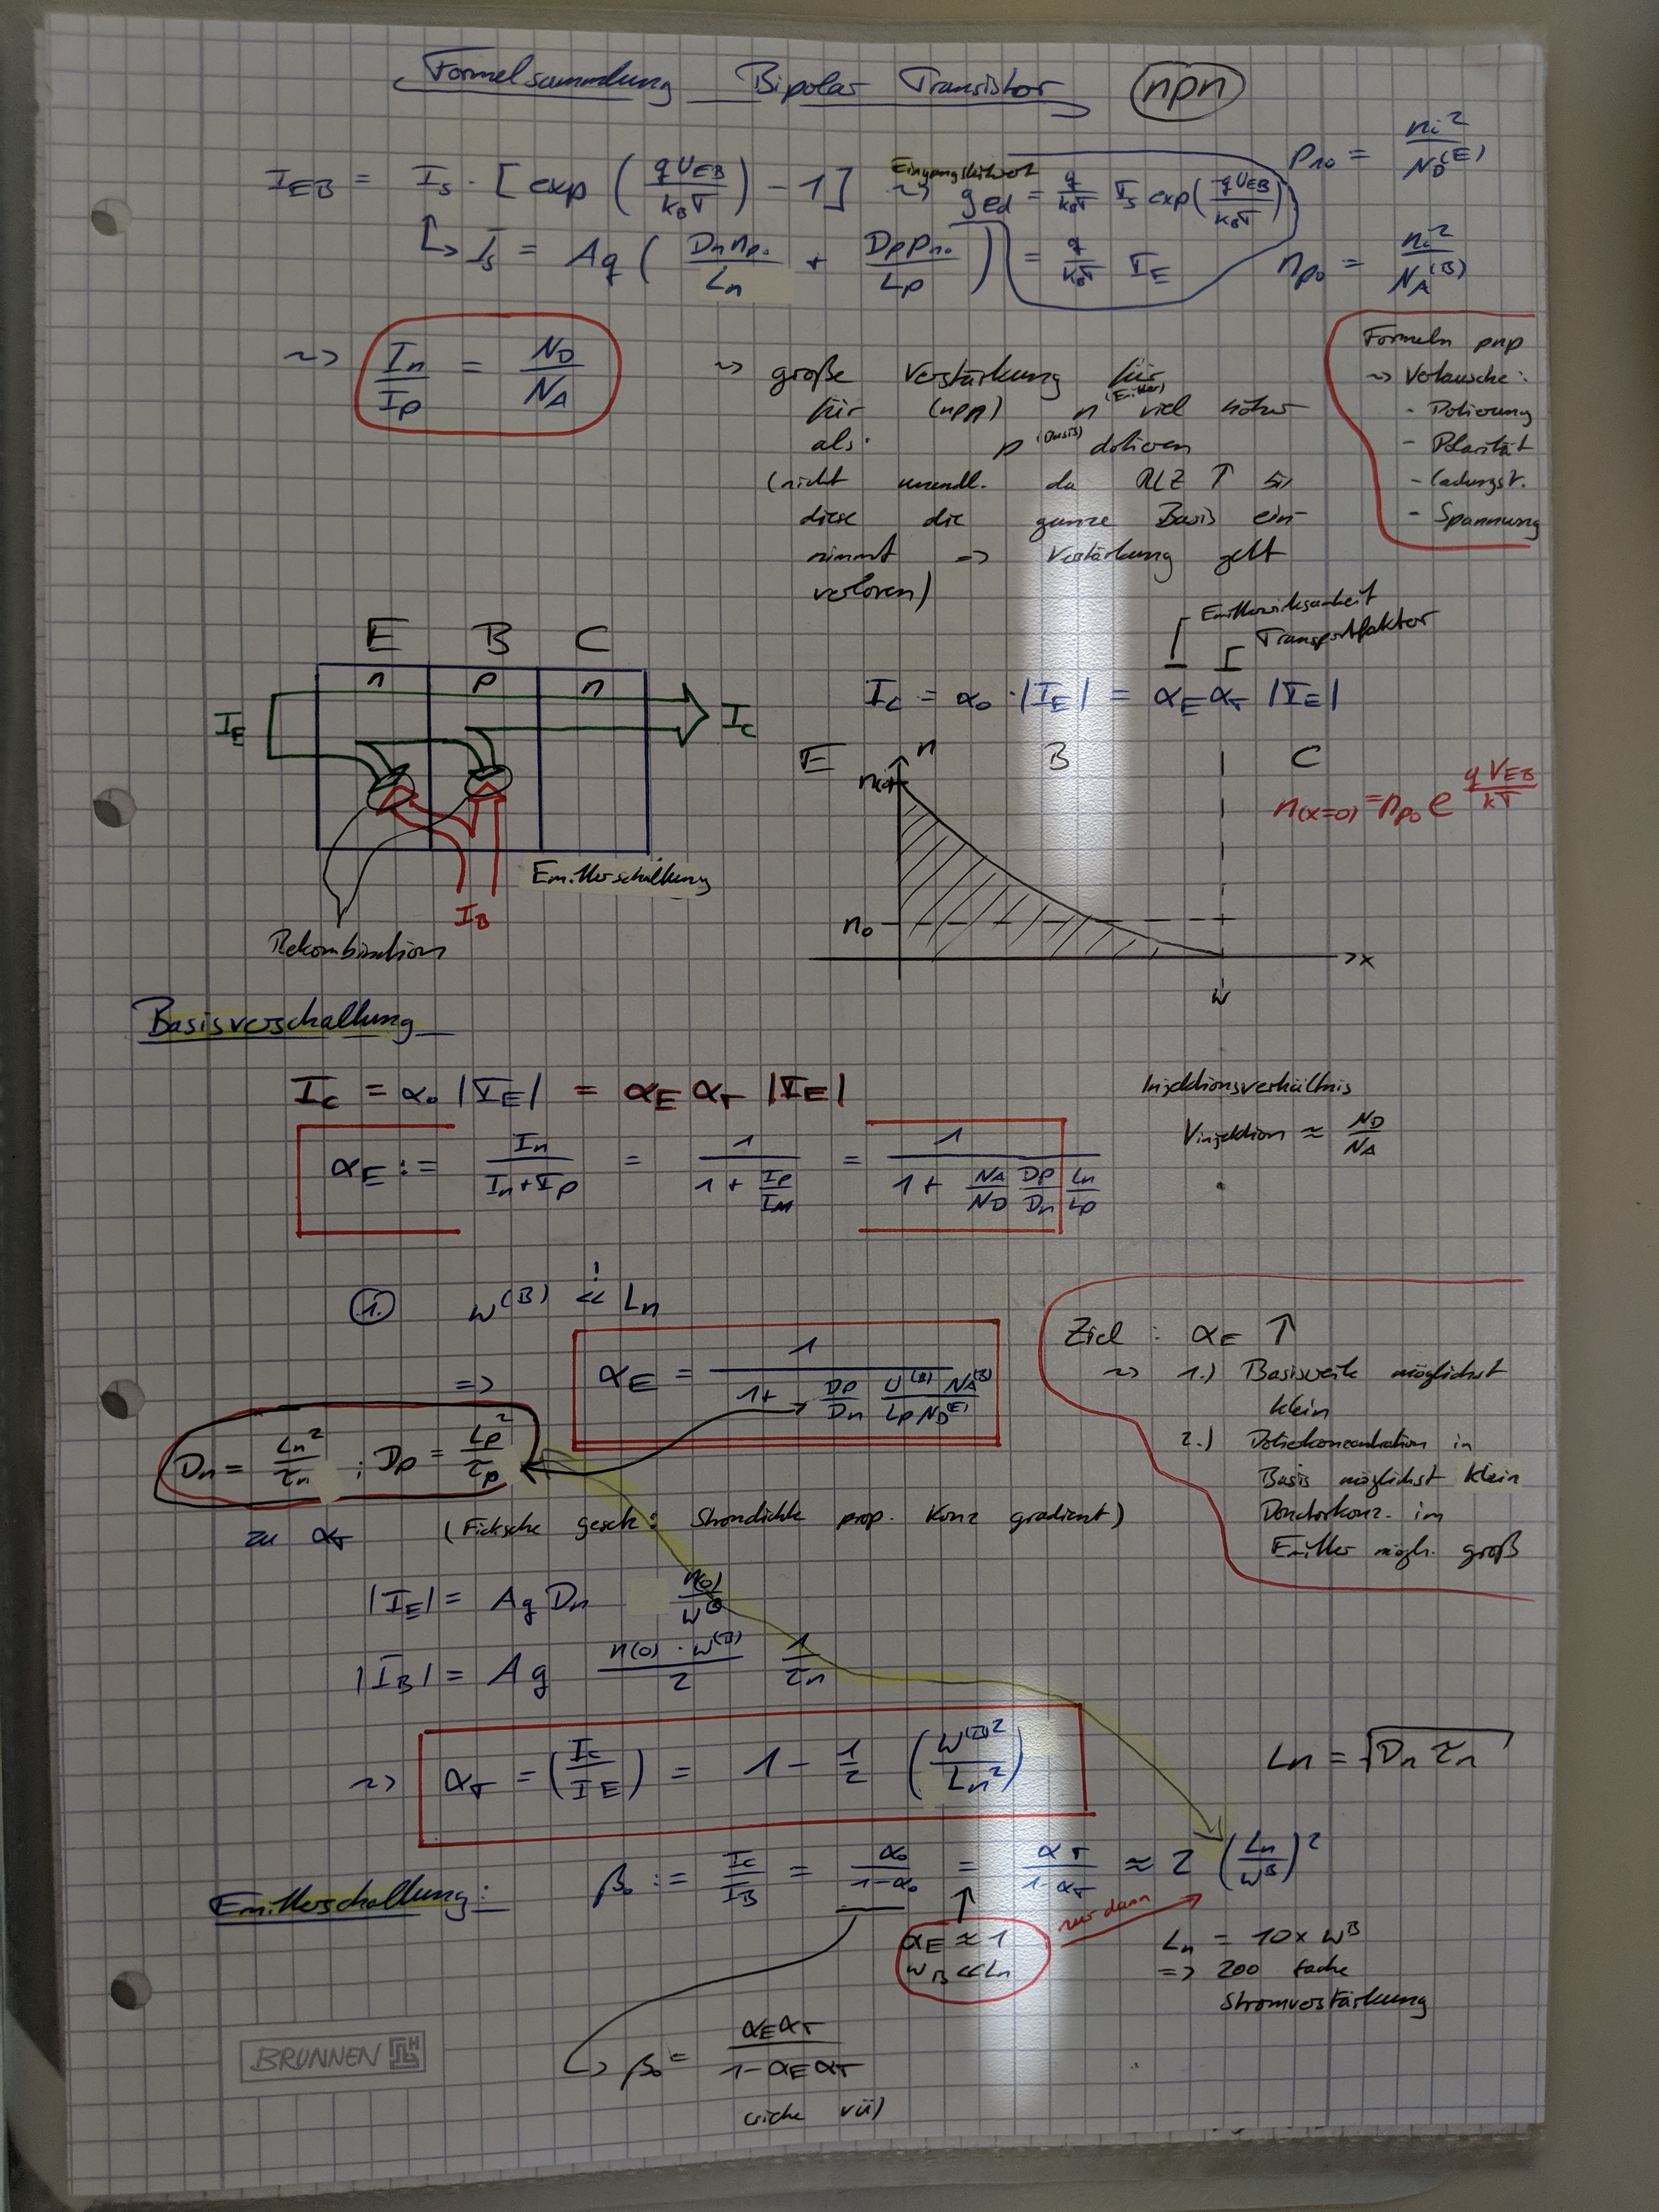 Formelsammlung Bipolar Transistor npn
I_EB = I_s · [exp(qU_EB / k_BT) − 1] ~> Eingangsleitwert g_ed = q/k_BT I_s exp(qU_EB / k_BT) p_n0 = n_i² / N_D^(E)
↳ I_s = Aq (D_n n_p0 / L_n + D_p p_n0 / L_p) = q/k_BT I_E n_p0 = n_i² / N_A^(B)
~> I_n / I_p = N_D / N_A
~> große Verstärkung für
für (npn) n (Emitter) viel höher
als: p (Basis) dotieren
(nicht unendl. da RLZ ↑ bis
diese die ganze Basis ein-
nimmt => Verstärkung geht
verloren)
Formeln pnp
~> Vertausche:
- Dotierung
- Polarität
- Ladungst.
- Spannung
E B C
n p n
I_E
I_C
I_B
Rekombination
Emitterschaltung
Emitterwirksamkeit
Transportfaktor
I_C = α_0 · |I_E| = α_E α_T |I_E|
E n B C
n_0
x
w
n(x=0) = n_p0 e^(qV_EB / kT)
Basisverschaltung
I_C = α_0 |I_E| = α_E α_T |I_E|
α_E := I_n / (I_n + I_p) = 1 / (1 + I_p/I_n) = 1 / (1 + N_A/N_D D_p/D_n L_n/L_p)
Injektionsverhältnis
V_injektion ≈ N_D / N_A
1. w^(B) ≪! L_n
=> α_E = 1 / (1 + D_p/D_n · W^(B) N_A^(B) / L_p N_D^(E))
D_n = L_n² / τ_n ; D_p = L_p² / τ_p
Ziel: α_E ↑
~> 1.) Basisweite möglichst
klein
2.) Dotierkonzentration in
Basis möglichst klein
Donatorkonz. im
Emitter mögl. groß
zu α_T (Ficksche gesetz: Stromdichte prop. Konz gradient)
|I_E| = A q D_n n(0) / w^B
|I_B| = A q n(0) · w^(B) / 2 1/τ_n
~> α_T = (I_C / I_E) = 1 − 1/2 (W^(B)2 / L_n²)
L_n = √(D_n τ_n)
Emitterschaltung: β_0 := I_C / I_B = α_0 / (1−α_0) = α_T / (1−α_T) ≈ 2 (L_n / w^B)²
α_E ≈ 1
w_B ≪ L_n
nur dann
L_n = 10 x w^B
=> 200 fache
Stromverstärkung
↳ β_0 = α_E α_T / (1 − α_E α_T)
(siehe VÜ)
BRUNNEN